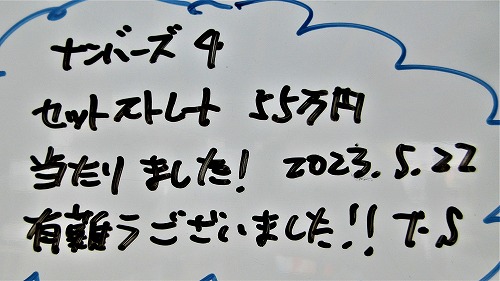 ナンバーズ4
セットストレート 55万円
当たりました! 2023.5.22
有難うございました!! T.S